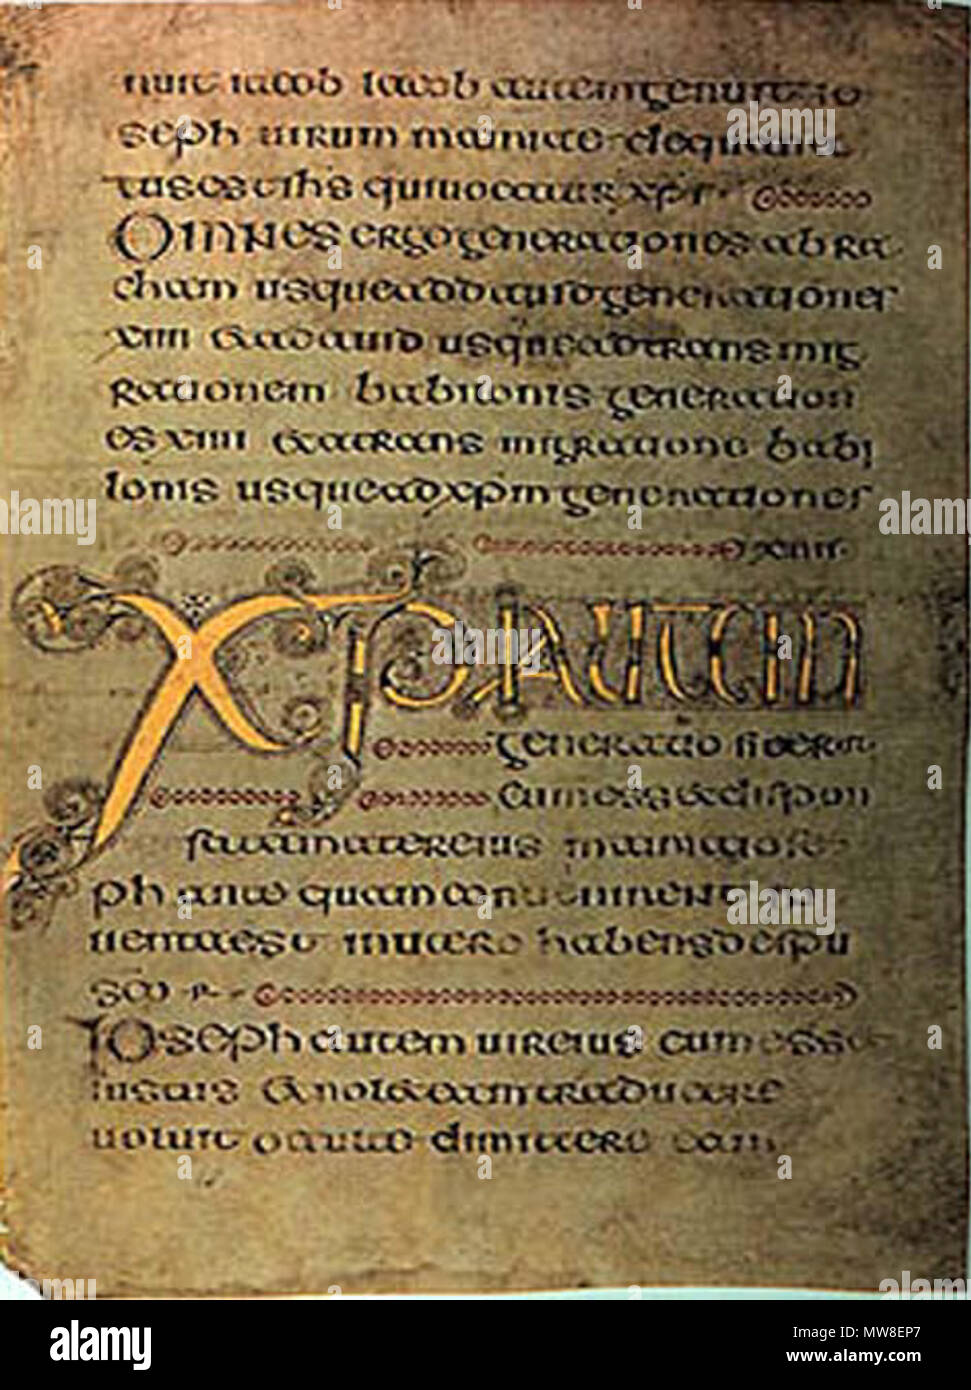 nuit iacob Iacob autem genuit io
seph uirum mariae de qua na
tus est ihs qui uocatur xps
Omnes ergo generationes abra
cham usque ad dauid generationes
xiiii & a dauid usque ad transmig
rationem babilonis generation
es xiiii & a transmigratione babi
lonis usque ad xpm generationes
xiiii
XPI AUTEM
generatio sic erat
cum ess& dispon
sata mater eius maria iose
ph antequam conuenirent in
uenta est in utero habens de spu
sco
Ioseph autem uir eius cum esset
iustus & nol& eam traducere
uoluit occulte dimittere eam
alamy
Image ID: MW8EP7
www.alamy.com